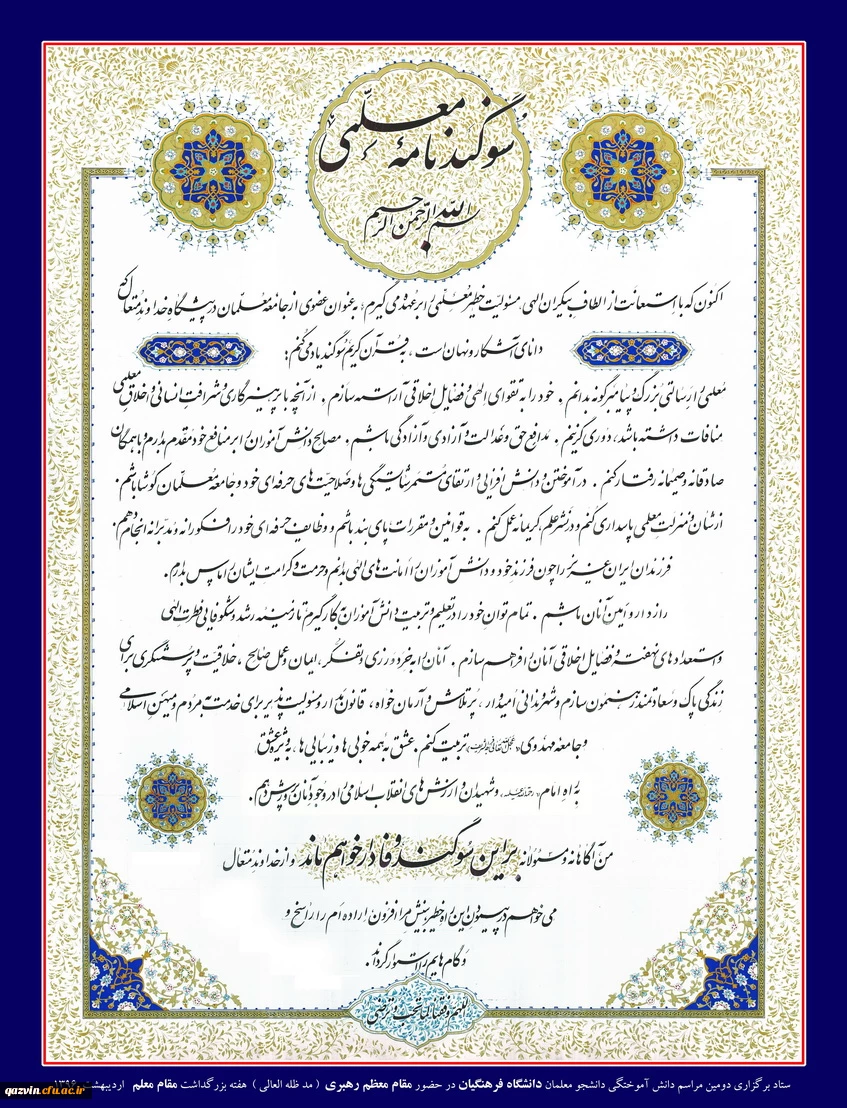 سوگندنامهٔ معلّمی
بسم الله الرّحمن الرّحیم
اکنون که با استعانت از الطاف بیکران الهی، مسئولیت خطیر معلّمی را بر عهده می گیرم؛ به عنوان عضوی از جامعه معلّمان در پیشگاه خداوند متعال که
دانای آشکار و نهان است، به قرآن کریم سوگند یاد می کنم:
معلمی را رسالتی بزرگ و پیامبرگونه بدانم. خود را به تقوای الهی و فضایل اخلاقی آراسته سازم. از آنچه با پرهیزگاری و شرافت انسانی و اخلاق معلمی
منافات داشته باشد، دوری گزینم. مدافع حق و عدالت و آزادی و آزادگی باشم. مصالح دانش آموزان را بر منافع خود مقدم بدارم و با همگان
صادقانه و صمیمانه رفتار کنم. در آموختن و دانش افزایی و ارتقای مستمر شایستگی ها و صلاحیت های حرفه ای خود و جامعه معلّمان کوشا باشم.
از شأن و منزلت معلمی پاسداری کنم و در نشر علم، کریمانه عمل کنم. به قوانین و مقررات پای بند باشم و وظایف حرفه ای خود را فکورانه و مدبرانه انجام دهم.
فرزندان ایران عزیز را چون فرزند خود و دانش آموزان را امانت های الهی بدانم و حرمت و کرامت ایشان را پاس بدارم.
رازدار و امین آنان باشم. تمام توان خود را در تعلیم و تربیت دانش آموزان به کار گیرم تا زمینه رشد و شکوفایی فطرت الهی
و استعدادهای نهفته و فضایل اخلاقی آنان را فراهم سازم. آنان را به خردورزی و تفکّر، ایمان و عمل صالح، خلاقیت و پرسشگری برای
زندگی پاک و سعادتمند رهنمون سازم و شهروندانی امیدوار، پرتلاش و آرمان خواه، قانون مدار و مسئولیت پذیر برای خدمت به مردم و میهن اسلامی
و جامعه مهدوی (عجل الله تعالی فرجه الشریف) تربیت کنم. عشق به همه خوبی ها و زیبایی ها، به ویژه عشق
به راه امام (رحمة الله علیه) و شهیدان و ارزش های انقلاب اسلامی را در وجود آنان پرورش دهم.
من آگاهانه و مسئولانه بر این سوگند وفادار خواهم ماند و از خداوند متعال
می خواهم در پیمودن این راه خطیر بینش مرا افزون، اراده ام را راسخ و
و گام هایم را استوار گرداند.
اللهم وفقنا لما تحب و ترضی
ستاد برگزاری دومین مراسم دانش آموختگی دانشجو معلمان دانشگاه فرهنگیان در حضور مقام معظم رهبری ( مد ظله العالی ) هفته بزرگداشت مقام معلم
qazvin.cfu.ac.ir